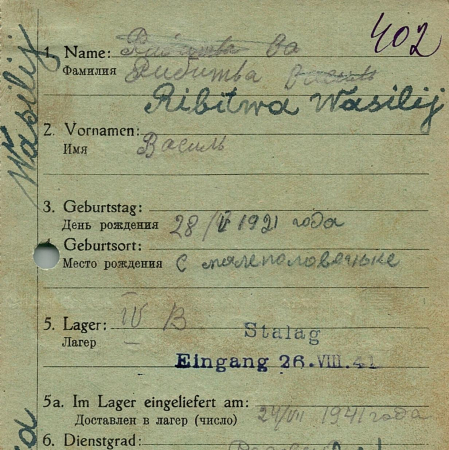 402
1. Name: Рибитва Ва
Фамилия Рибитва
Ribitwa Wasilij
Wasilij
2. Vornamen:
Имя Василь
3. Geburtstag:
День рождения 28/V 1921 года
4. Geburtsort:
Место рождения с малеполовецьке
5. Lager: IV B
Лагер
Stalag
Eingang 26.VIII.41
5a. Im Lager eingeliefert am:
Доставлен в лагер (число) 24/VII 1941 года
6. Dienstgrad: